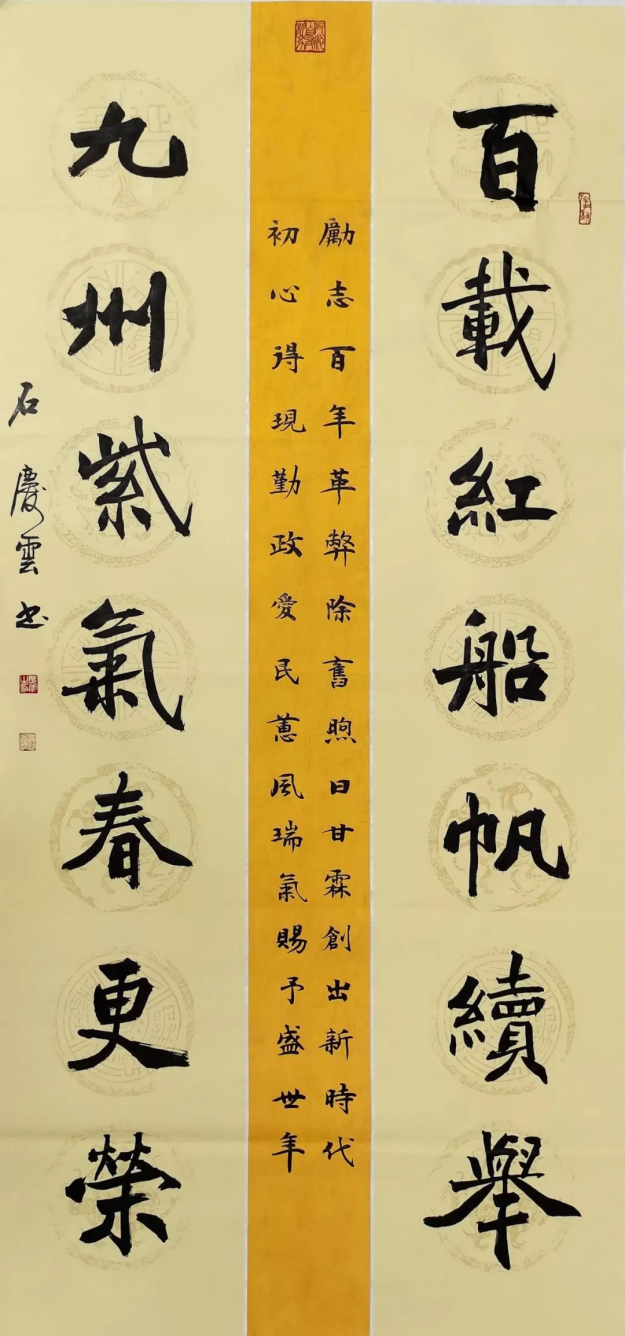 百載紅船帆續舉
勵志百年革弊除舊煦日甘霖創出新時代
初心得現勤政愛民蕙風瑞氣賜予盛世年
九州紫氣春更榮
石慶雲书